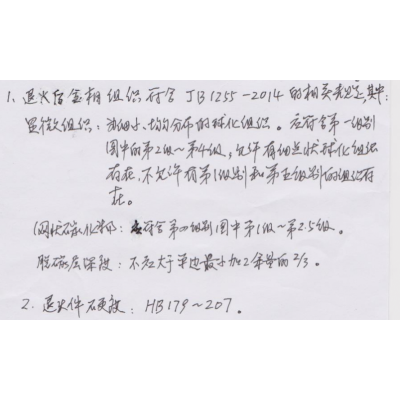 1、退火后金相组织符合 JB1255-2014 的相关规定,其中:
显微组织:为细小、均匀分布的球化组织。应符合第一级别
图中的第2级~第4级,允许有细点状球化组织
存在,不允许有第1级别和第五级别的组织存
在。
网状碳化物:应符合第四级别图中第1级~第2.5级。
脱碳层深度:不应大于单边最小加工余量的2/3。
2.退火件硬度:HB179~207。